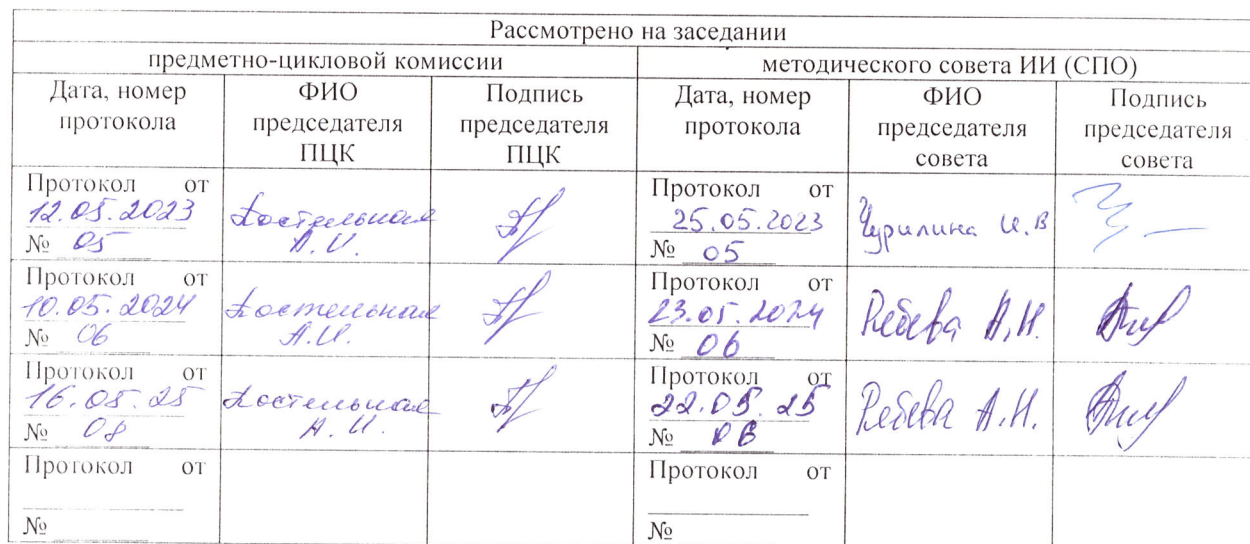 Рассмотрено на заседании
предметно-цикловой комиссии
методического совета ИИ (СПО)
Дата, номер протокола
ФИО председателя ПЦК
Подпись председателя ПЦК
Дата, номер протокола
ФИО председателя совета
Подпись председателя совета
Протокол от
12.05.2023
№ 05
Костельная
А.И.
Протокол от
25.05.2023
№ 05
Чурилина И.В
Протокол от
10.05.2024
№ 06
Костельная
А.И.
Протокол от
23.05.2024
№ 06
А.Н.
Протокол от
16.05.25
№ 08
Костельная
А.И.
Протокол от
22.05.25
№ 06
А.Н.
Протокол от
№
Протокол от
№